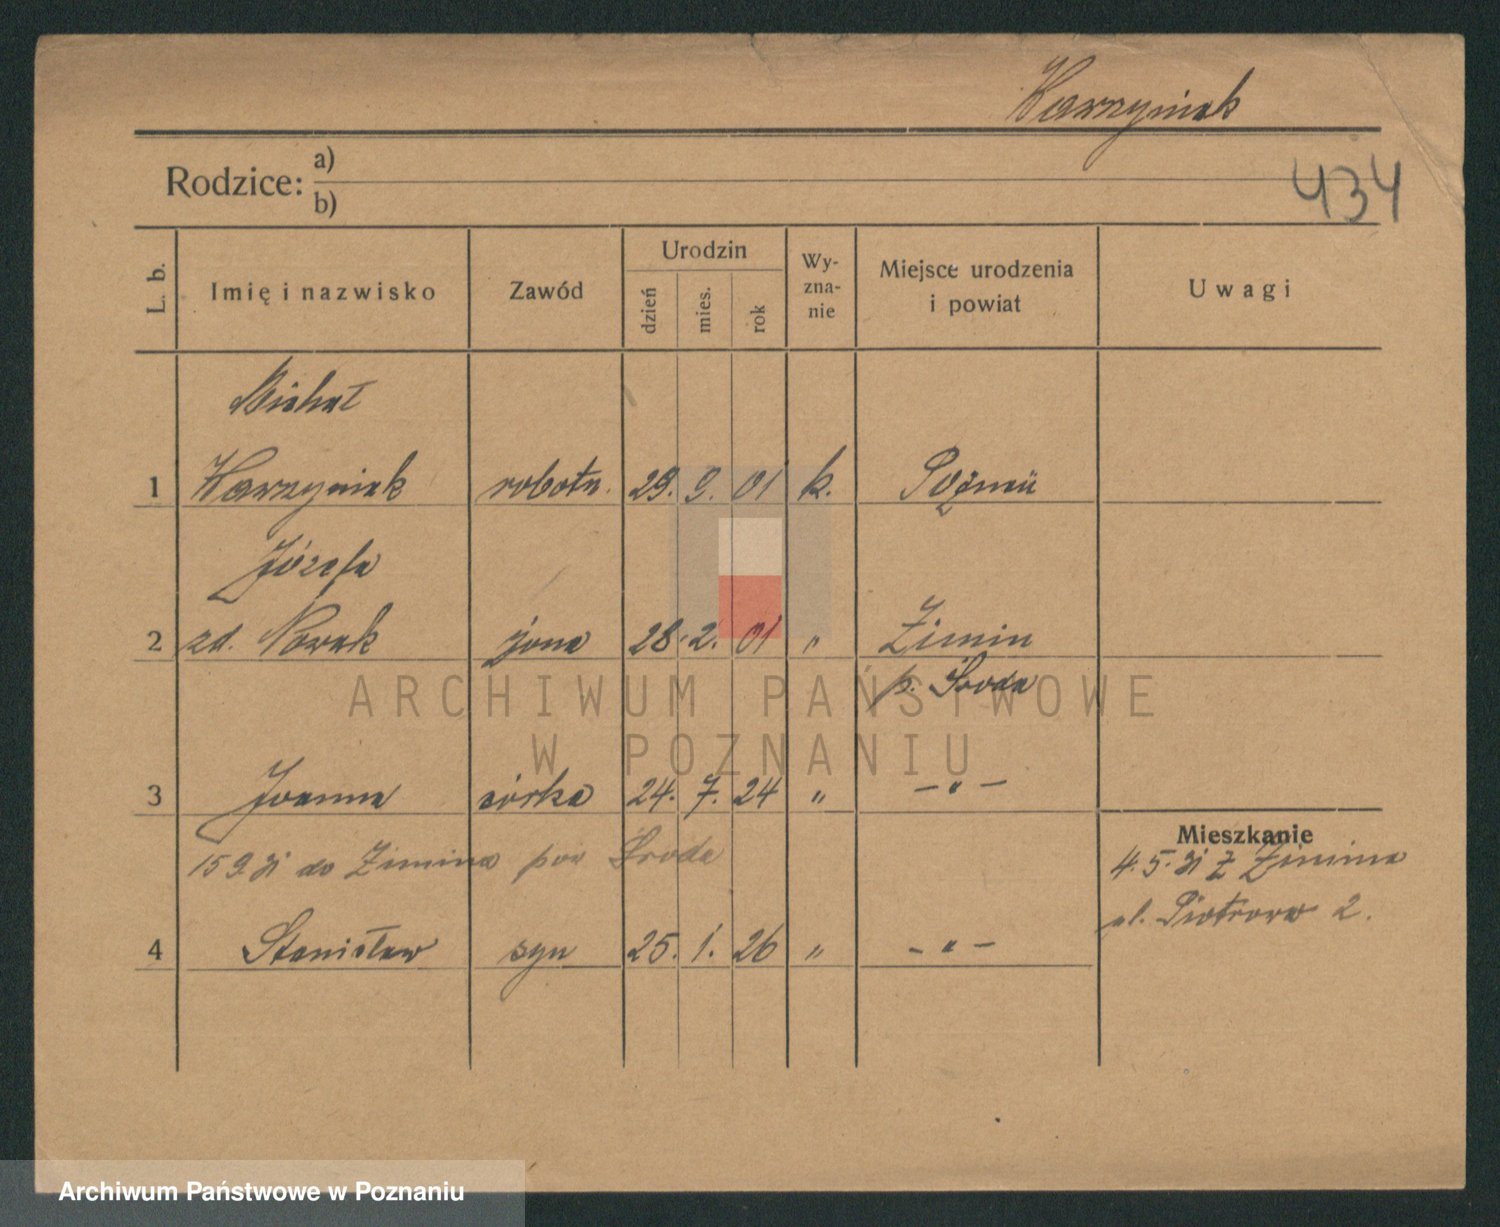 Warzyniak
434
Rodzice: a)
b)
L. b. Imię i nazwisko Zawód Urodzin dzień mies. rok Wy-zna-nie Miejsce urodzenia i powiat Uwagi
Michał
1 Warzyniak robotn. 29. 9. 01 k. Poznań
Józefa
2 zd. Nowak żona 28. 2. 01 " Zimin
p. Środa
ARCHIWUM PAŃSTWOWE
W POZNANIU
3 Joanna córka 24. 7. 24 " — " —
Mieszkanie
15 9 31 do Zimina pow Środa
4. 5. 31 z Zimina
ul. Piotrowo 2.
4 Stanisław syn 25. 1. 26 " — " —
Archiwum Państwowe w Poznaniu